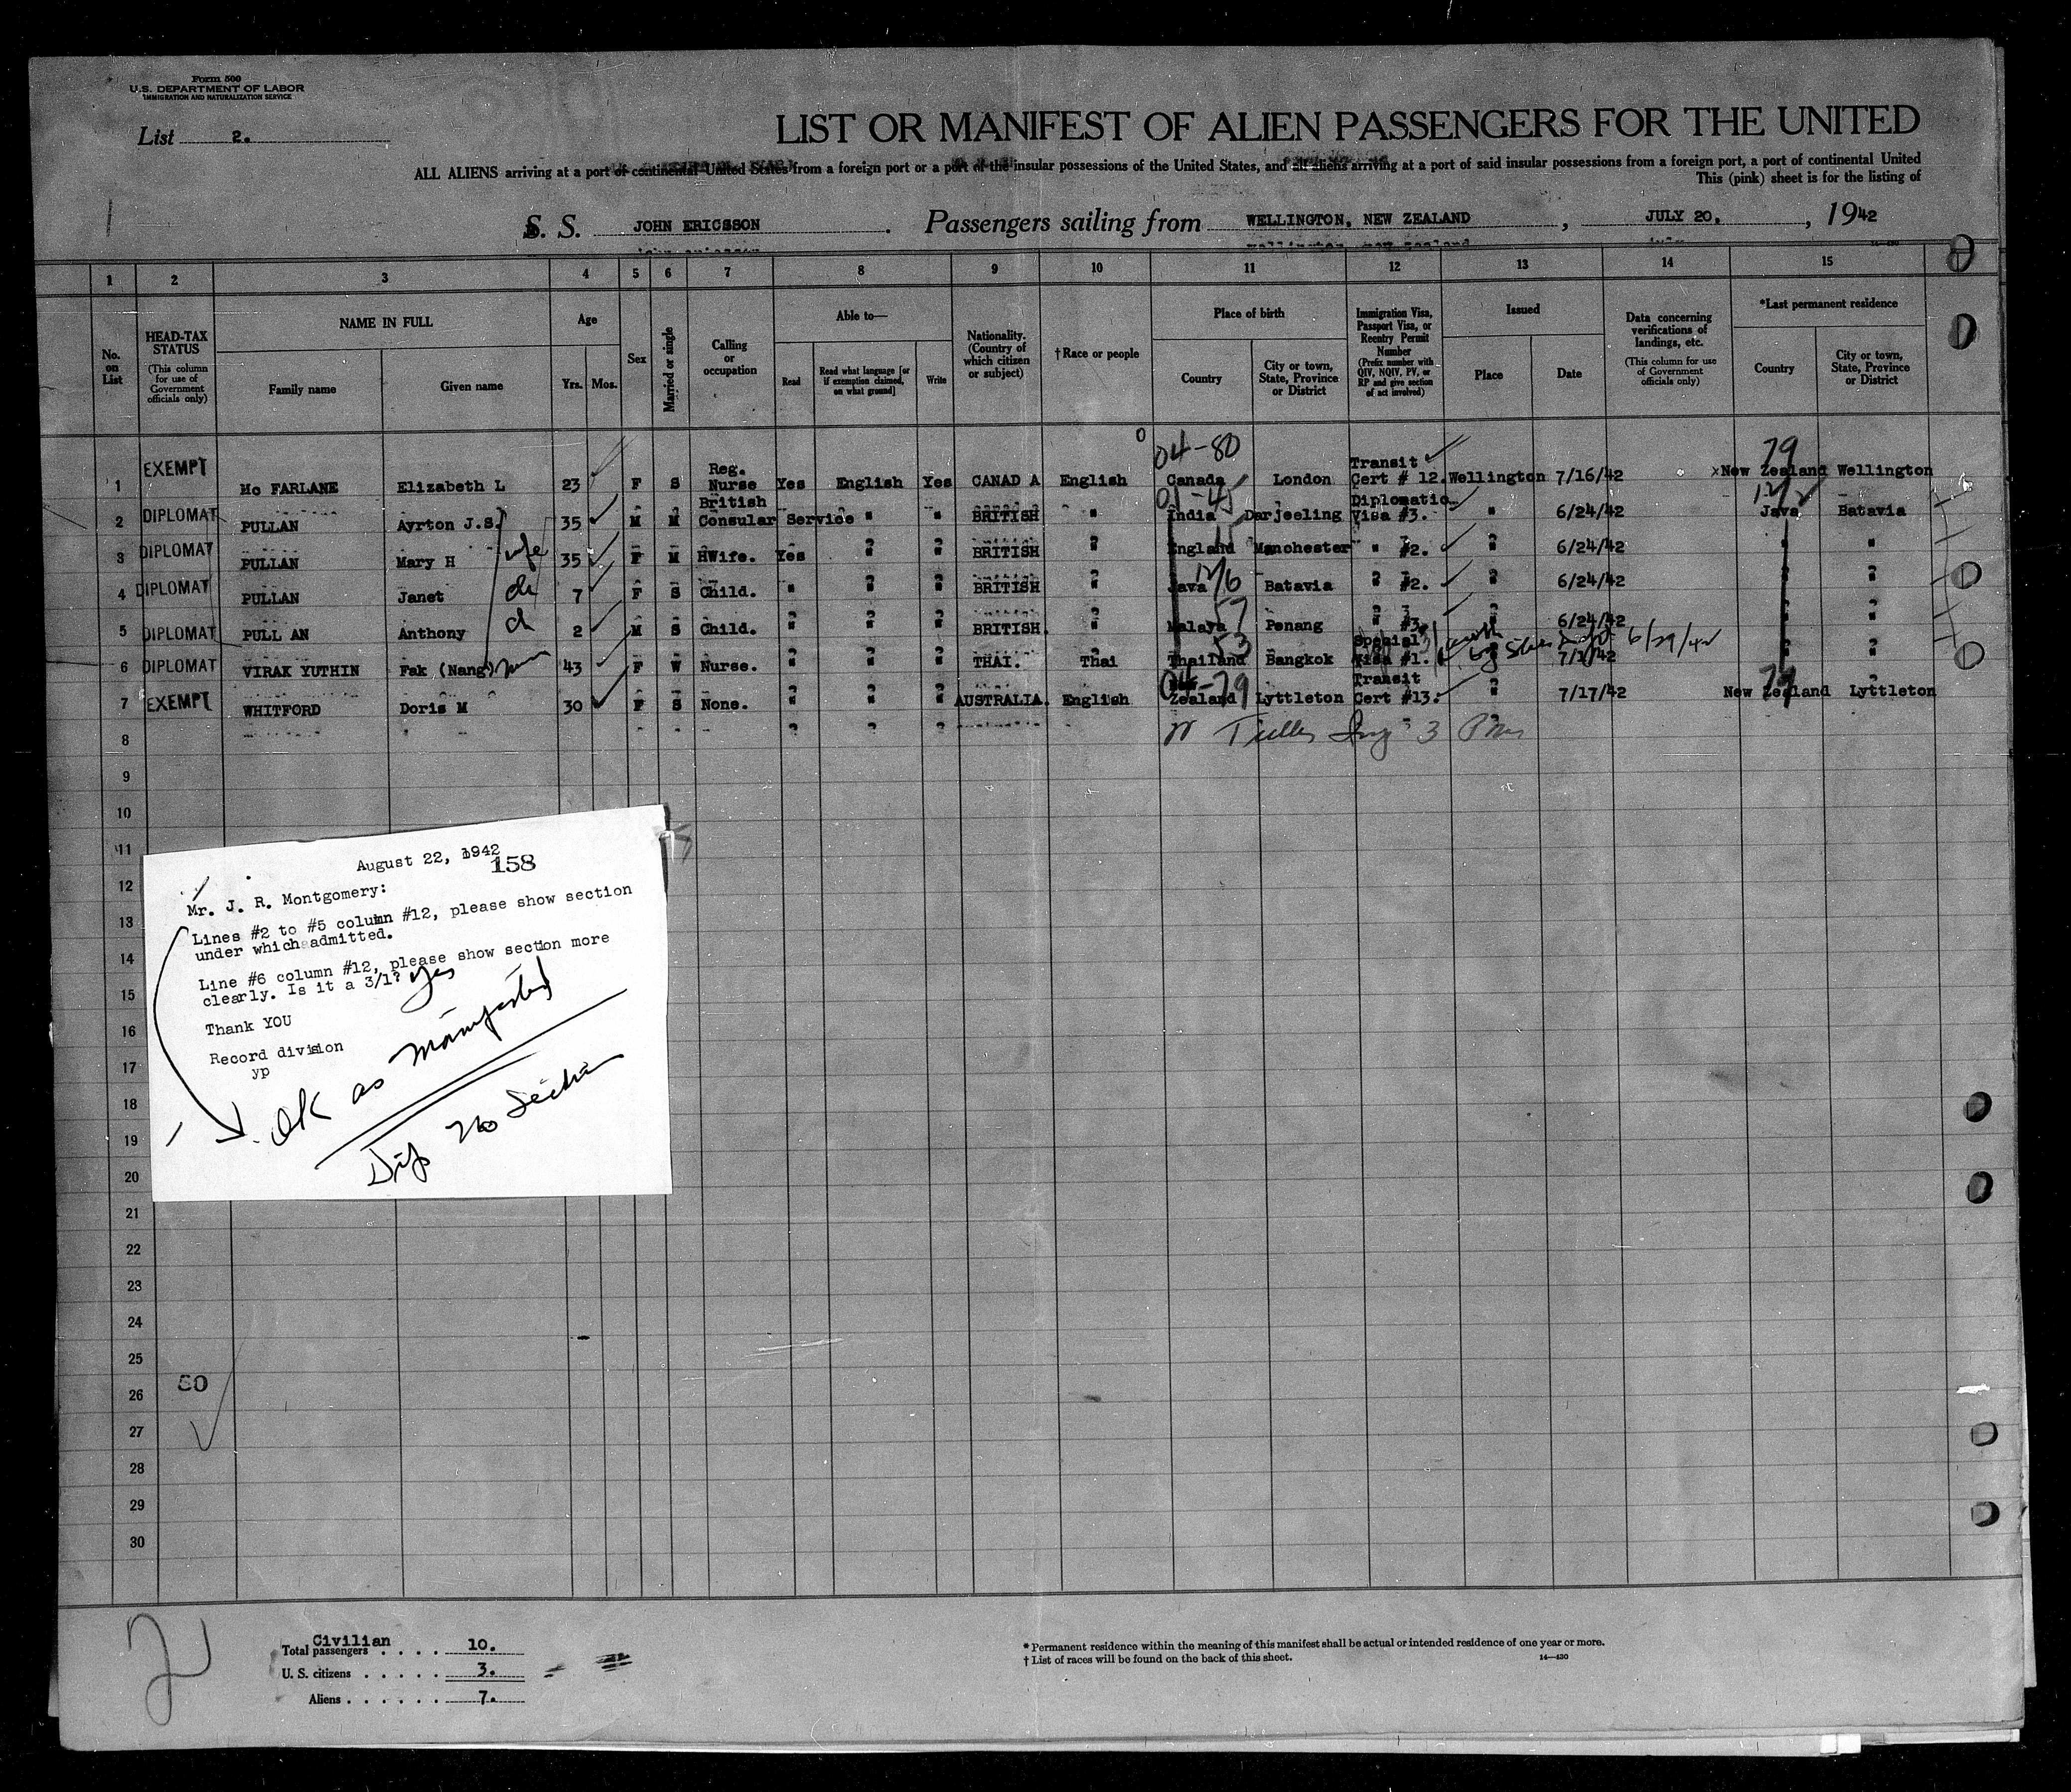 Form 500
U.S. DEPARTMENT OF LABOR
IMMIGRATION AND NATURALIZATION SERVICE
List 2.
LIST OR MANIFEST OF ALIEN PASSENGERS FOR THE UNITED
ALL ALIENS arriving at a port of continental United States from a foreign port or a port of the insular possessions of the United States, and all aliens arriving at a port of said insular possessions from a foreign port, a port of continental United
This (pink) sheet is for the listing of
S. S. JOHN ERICSSON. Passengers sailing from WELLINGTON, NEW ZEALAND, JULY 20, , 1942
1 2 3 4 5 6 7 8 9 10 11 12 13 14 15
No. on List
HEAD-TAX STATUS (This column for use of Government officials only)
NAME IN FULL
Family name
Given name
Age
Yrs. Mos.
Sex
Married or single
Calling or occupation
Able to—
Read
Read what language [or if exemption claimed, on what ground]
Write
Nationality. (Country of which citizen or subject)
† Race or people
Place of birth
Country
City or town, State, Province or District
Immigration Visa, Passport Visa, or Reentry Permit Number (Prefix number with QIV, NQIV, PV, or RP and give section of act involved)
Issued
Place
Date
Data concerning verifications of landings, etc. (This column for use of Government officials only)
*Last permanent residence
Country
City or town, State, Province or District
0 04-80 79
1 EXEMPT Mc FARLANE Elizabeth L 23 F S Reg. Nurse Yes English Yes CANAD A English Canada London Transit Cert # 12. Wellington 7/16/42 xNew Zealand Wellington
2 DIPLOMAT PULLAN Ayrton J.S. 35 M M British Consular Service " " BRITISH " India Darjeeling Diplomatic Visa #3. " 6/24/42 Java Batavia
3 DIPLOMAT PULLAN Mary H wife 35 F M HWife. Yes " " BRITISH " England Manchester " #2. " 6/24/42 " "
4 DIPLOMAT PULLAN Janet ch 7 F S Child. " " " BRITISH " Java Batavia " #2. " 6/24/42 " "
5 DIPLOMAT PULL AN Anthony ch 2 M S Child. " " " BRITISH. " Malaya Penang " #3. " 6/24/42 " "
6 DIPLOMAT VIRAK YUTHIN Fak (Nang) 43 F W Nurse. " " " THAI. Thai Thailand Bangkok Special Visa #1. " 7/1/42 6/29/42 " "
7 EXEMPT WHITFORD Doris M 30 F S None. " " " AUSTRALIA. English Zealand Lyttleton Transit Cert #13. " 7/17/42 New Zealand Lyttleton
8
9
10
11
12
13
14
15
16
17
18
19
20
21
22
23
24
25
26
27
28
29
30
August 22, 1942
158
Mr. J. R. Montgomery:
Lines #2 to #5 column #12, please show section
under which admitted.
Line #6 column #12, please show section more
clearly. Is it a 3/1? yes
Thank YOU
Record division
yp
OK as manifested
Dip no Section
50
2
Civilian
Total passengers . . . . 10.
U. S. citizens . . . . . 3.
Aliens . . . . . . 7.
* Permanent residence within the meaning of this manifest shall be actual or intended residence of one year or more.
† List of races will be found on the back of this sheet.
14—430